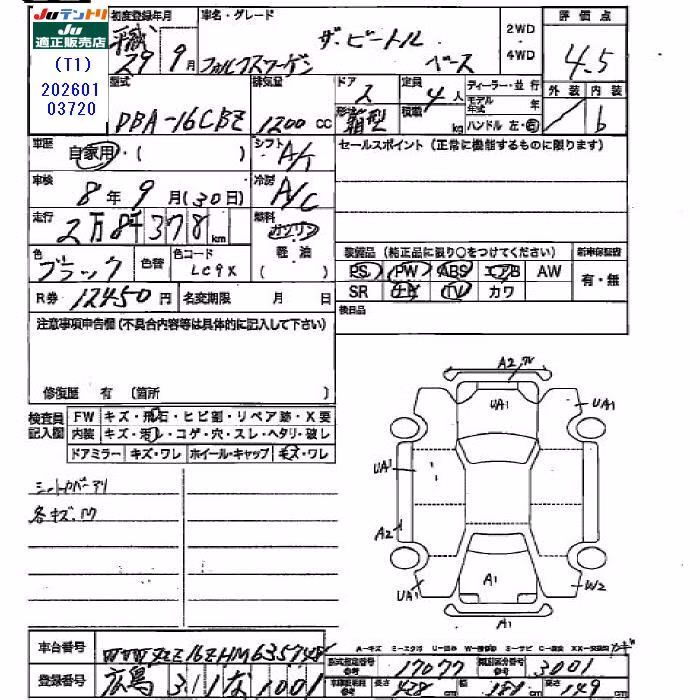 Juテントリ
Ju
適正販売店
(T1)
202601
03720
初度登録年月
29年 9月
車名・グレード
ザ・ビートル
フォルクスワーゲン ベース
2WD・4WD
評価点
4.5
外装 内装
b
型式
DBA-16CBZ
排気量
1200 CC
ドア
2
定員
4人
形状
箱型
積載
kg
ディーラー・並行
モデル年式 年
ハンドル 左・右
車歴
自家用・( )
シフト
A/T
セールスポイント(正常に機能するものに限ります)
車検
8年 9月(30日)
冷房
A/C
走行
2万8千378km
燃料
ガソリン
軽油
( )
色
ブラック
色替
色コード
LC9X
装備品(純正品に限り○をつけてください)
新車保証書
PS PW ABS エアB AW
有・無
SR ナビ TV カワ
R券 12450円
名変期限 月 日
後日品
注意事項申告欄(不具合内容等は具体的に記入して下さい)
修復歴 有(箇所 )
検査員記入欄
FW キズ・飛石・ヒビ割・リペア跡・X要
内装 キズ・汚レ・コゲ・穴・スレ・ヘタリ・破レ
ドアミラー キズ・ワレ ホイール・キャップ キズ・ワレ
シートカバーアリ
各キズ、凹
A2
UA1
UA1
UA1
A2
UA1
A1
W2
A1
車台番号
WVWZZZ16ZHM635748
登録番号
広島 311 な 1001
型式指定番号
17077
類別区分番号
3001
長さ 428cm 幅 181cm 高さ 149cm